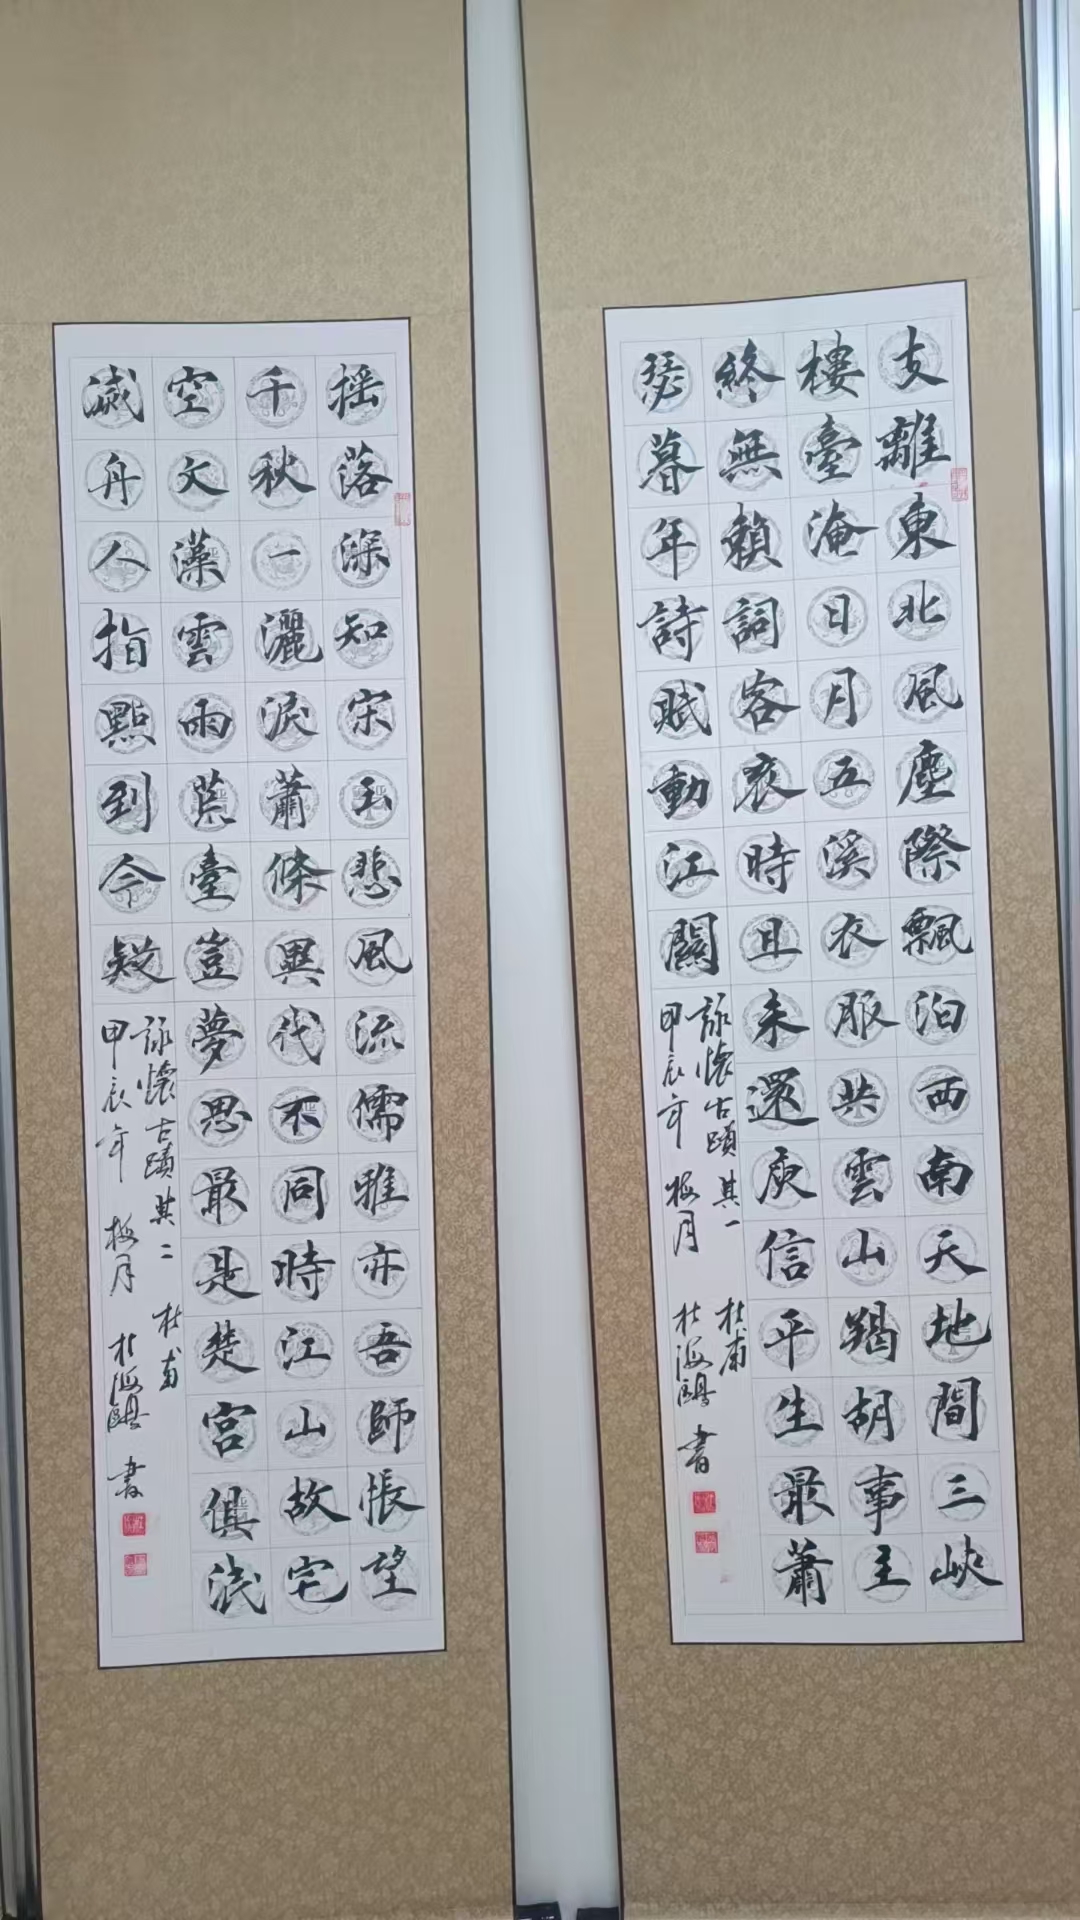 支離東北風塵際飄泊西南天地間三峽
樓臺淹日月五溪衣服共雲山羯胡事主
終無賴詞客哀時且未還庾信平生最蕭
瑟暮年詩賦動江關
詠懷古蹟其一 杜甫
甲辰年 梅月 杜海鷗 書
摇落深知宋玉悲風流儒雅亦吾師悵望
千秋一灑淚蕭條異代不同時江山故宅
空文藻雲雨荒臺豈夢思最是楚宮俱泯
滅舟人指點到今疑
詠懷古蹟其二 杜甫
甲辰年 梅月 杜海鷗 書